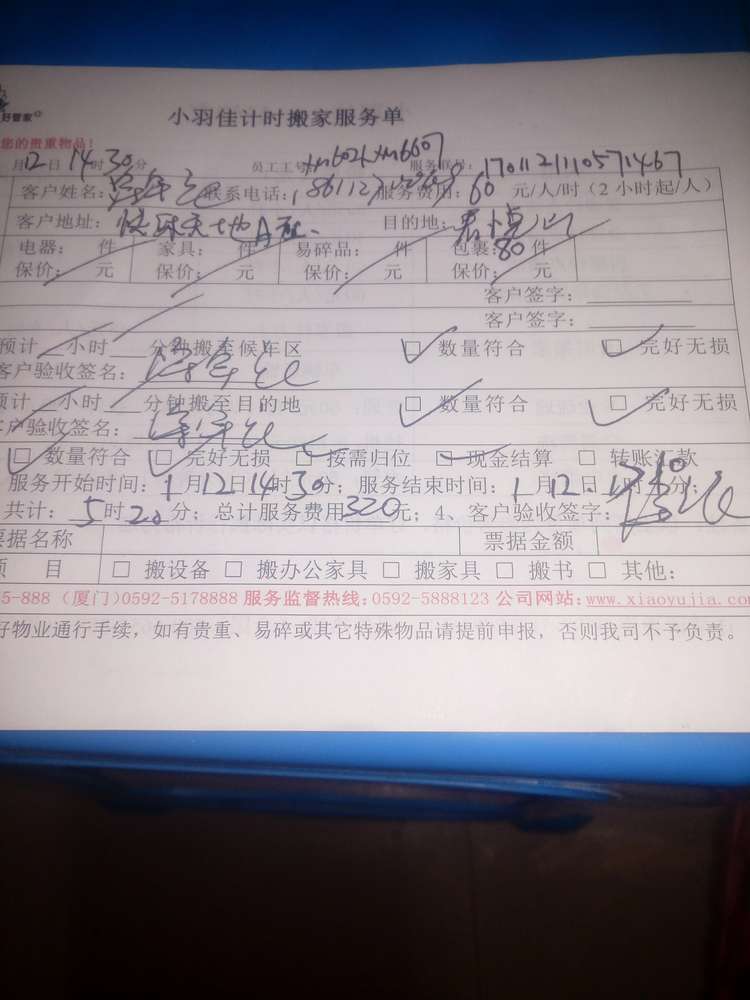 好管家
小羽佳计时搬家服务单
您的贵重物品!
月12日 14时30分 员工工号: 服务联号: 1701121110571467
客户姓名: 联系电话: 服务费用: 60 元/人/时(2小时起/人)
客户地址: 目的地:
电器: 件 家具: 件 易碎品: 件 包裹: 80件
保价: 元 保价: 元 保价: 元 保价: 元
客户签字:
客户签字:
预计 小时 分钟搬至候车区 □ 数量符合 □ 完好无损
客户验收签名:
预计 小时 分钟搬至目的地 □ 数量符合 □ 完好无损
客户验收签名:
□ 数量符合 □ 完好无损 □ 按需归位 □ 现金结算 □ 转账汇款
服务开始时间: 1月12日14时30分; 服务结束时间: 1月12日 时 分;
共计: 5时20分; 总计服务费用320元; 4、客户验收签字:
票据名称 票据金额
项 目 □ 搬设备 □ 搬办公家具 □ 搬家具 □ 搬书 □ 其他:
5-888 (厦门)0592-5178888 服务监督热线:0592-5888123 公司网站:www.xiaoyujia.com
好物业通行手续，如有贵重、易碎或其它特殊物品请提前申报，否则我司不予负责。